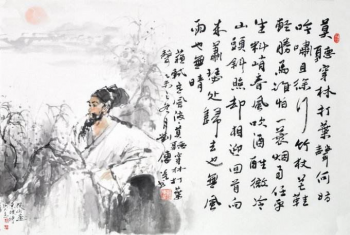 莫聽穿林打葉聲何妨
吟嘯且徐行竹杖芒鞋
輕勝馬誰怕一蓑烟雨任平
生料峭春風吹酒醒微冷
山頭斜照却相迎回首向
来蕭瑟處歸去也無風
雨也無晴
蘇軾定風波莫聽穿林打葉
聲